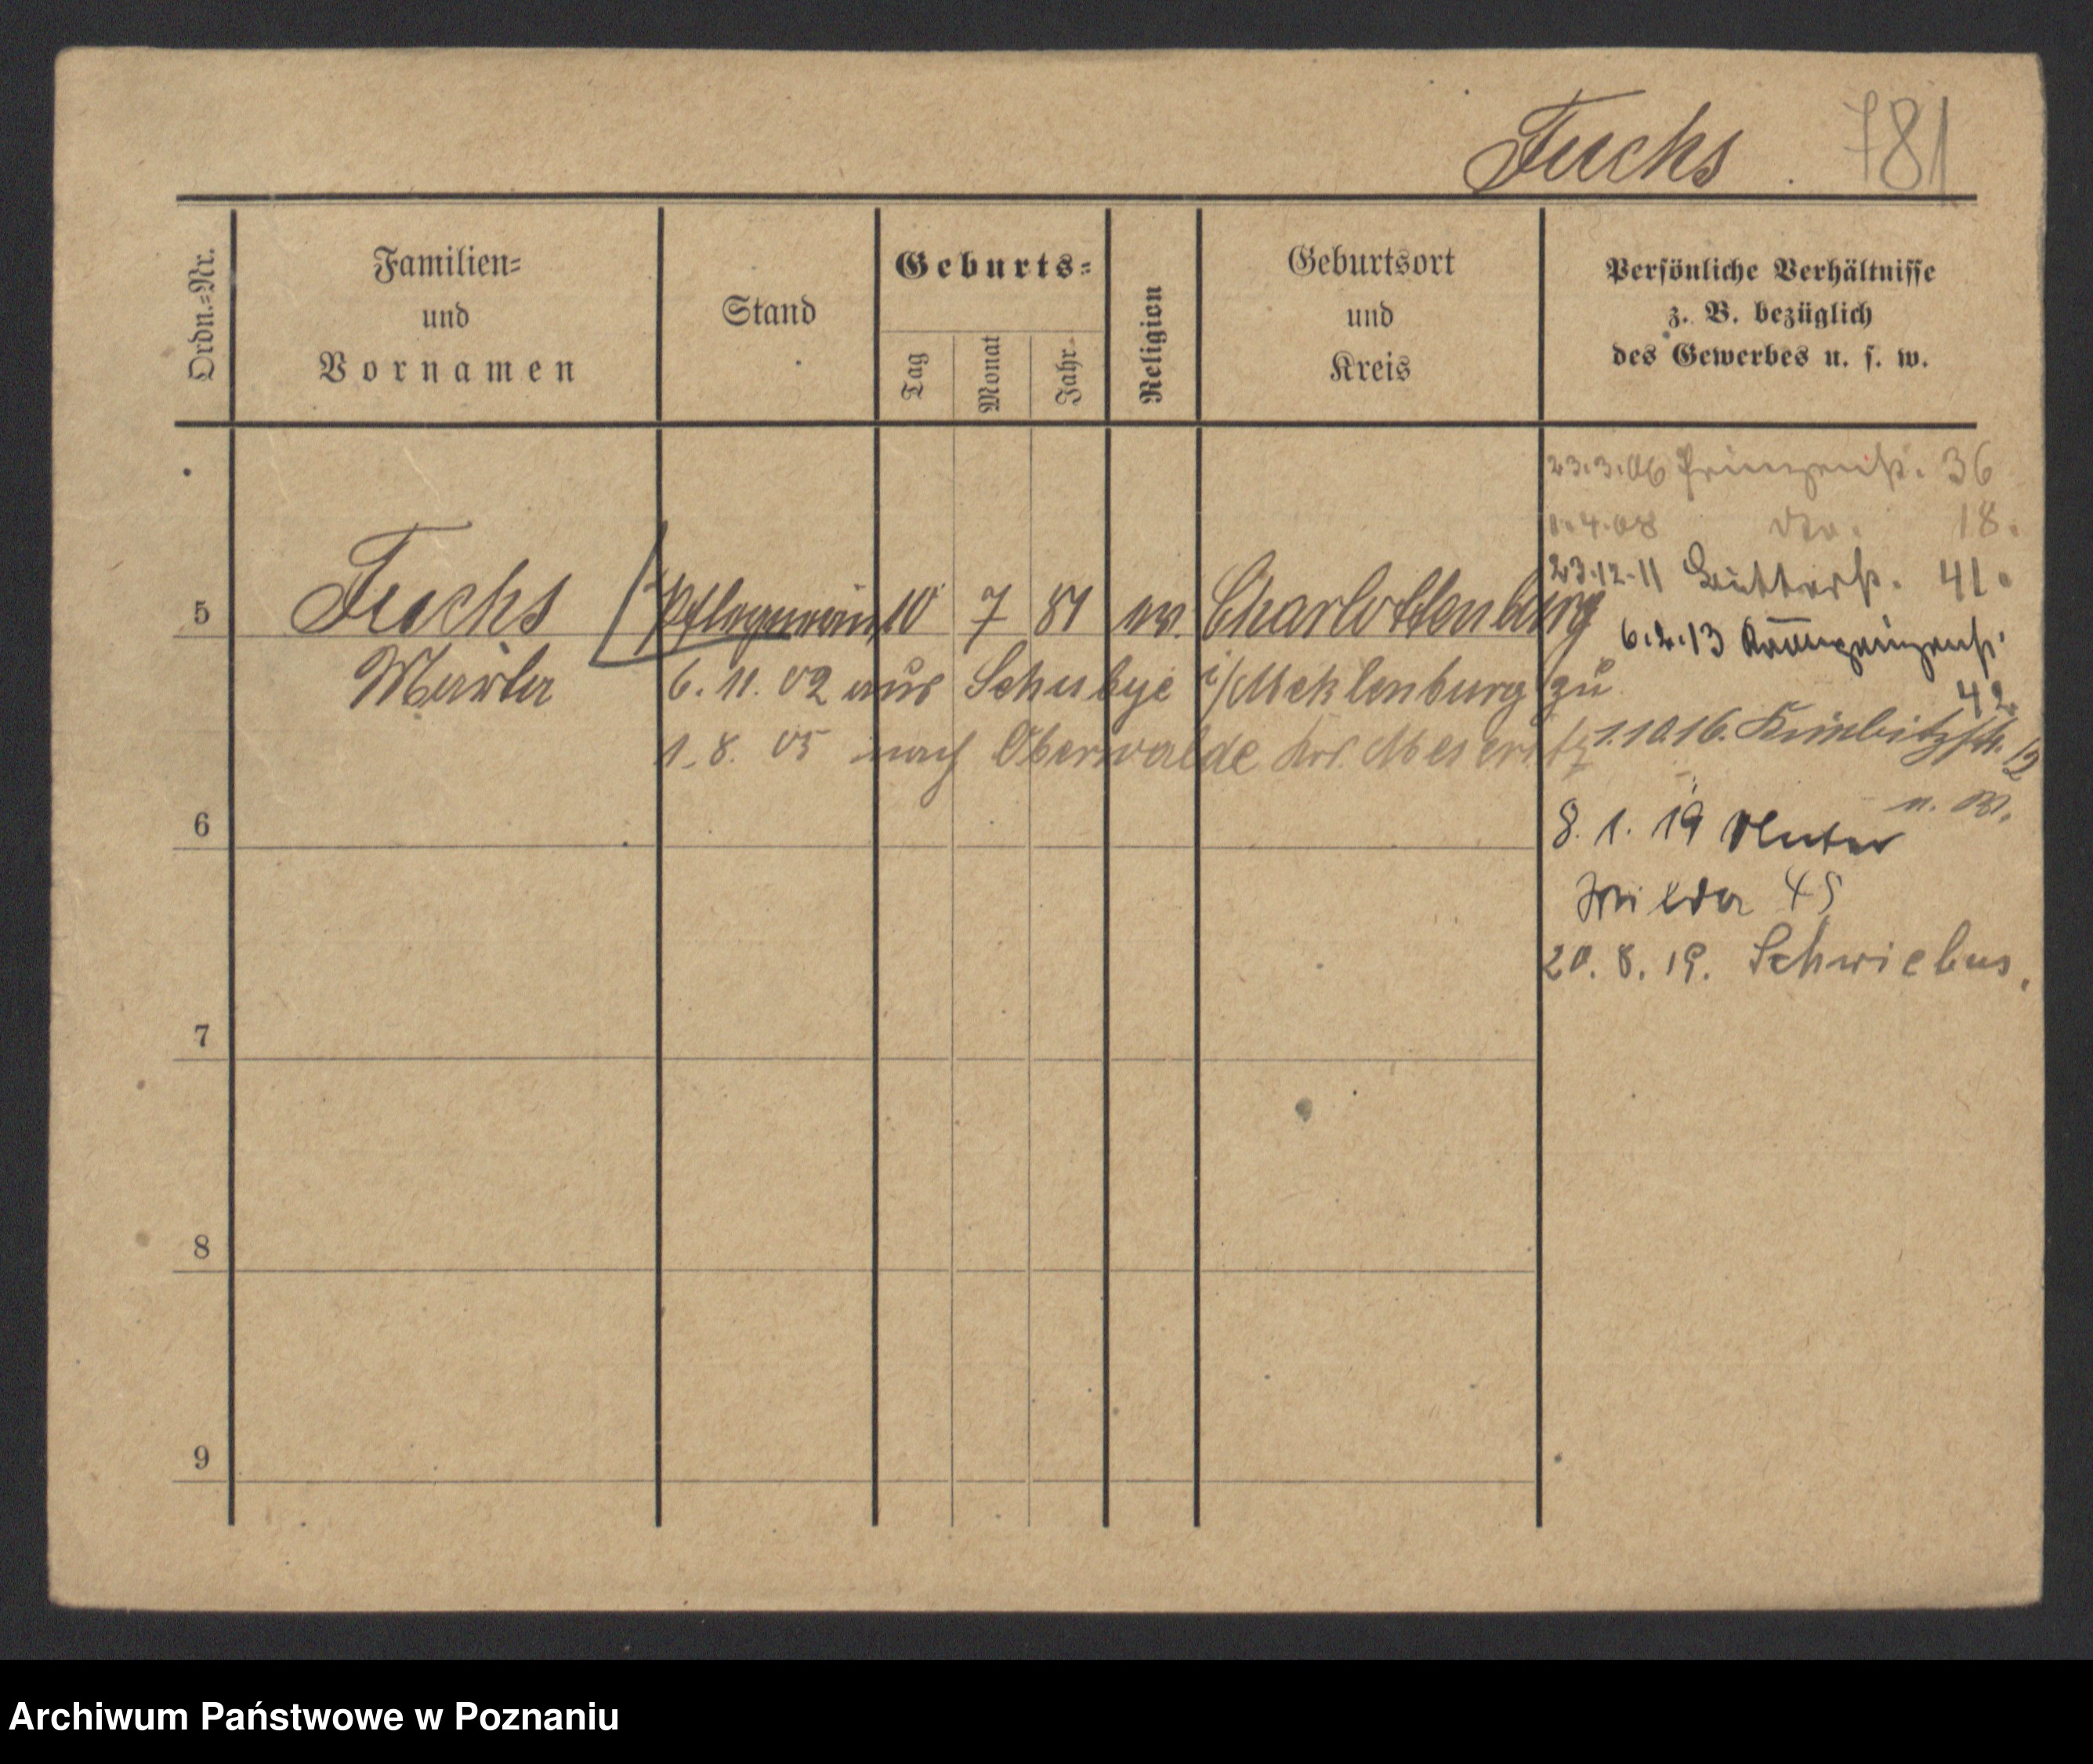 Fuchs. 781
Ordn.-Nr.
Familien-
und
Vornamen
Stand
Geburts-
Tag
Monat
Jahr
Religion
Geburtsort
und
Kreis
Persönliche Verhältnisse
z. B. bezüglich
des Gewerbes u. s. w.
23.3.06 Prinzenstr. 36
1.4.08 dto. 18.
23.12.11 41.
5 Fuchs 10 7 81 ev. Charlottenburg
6.2.13 Kronprinzenstr.
42
6. 11. 02 aus i/Meklenburg zu
1. 8. 05 nach Oberwalde Krs. Meseritz
1.10.16. 12
6
8. 1. 19
45
20. 8. 19. Schwiebus.
7
8
9
Archiwum Państwowe w Poznaniu